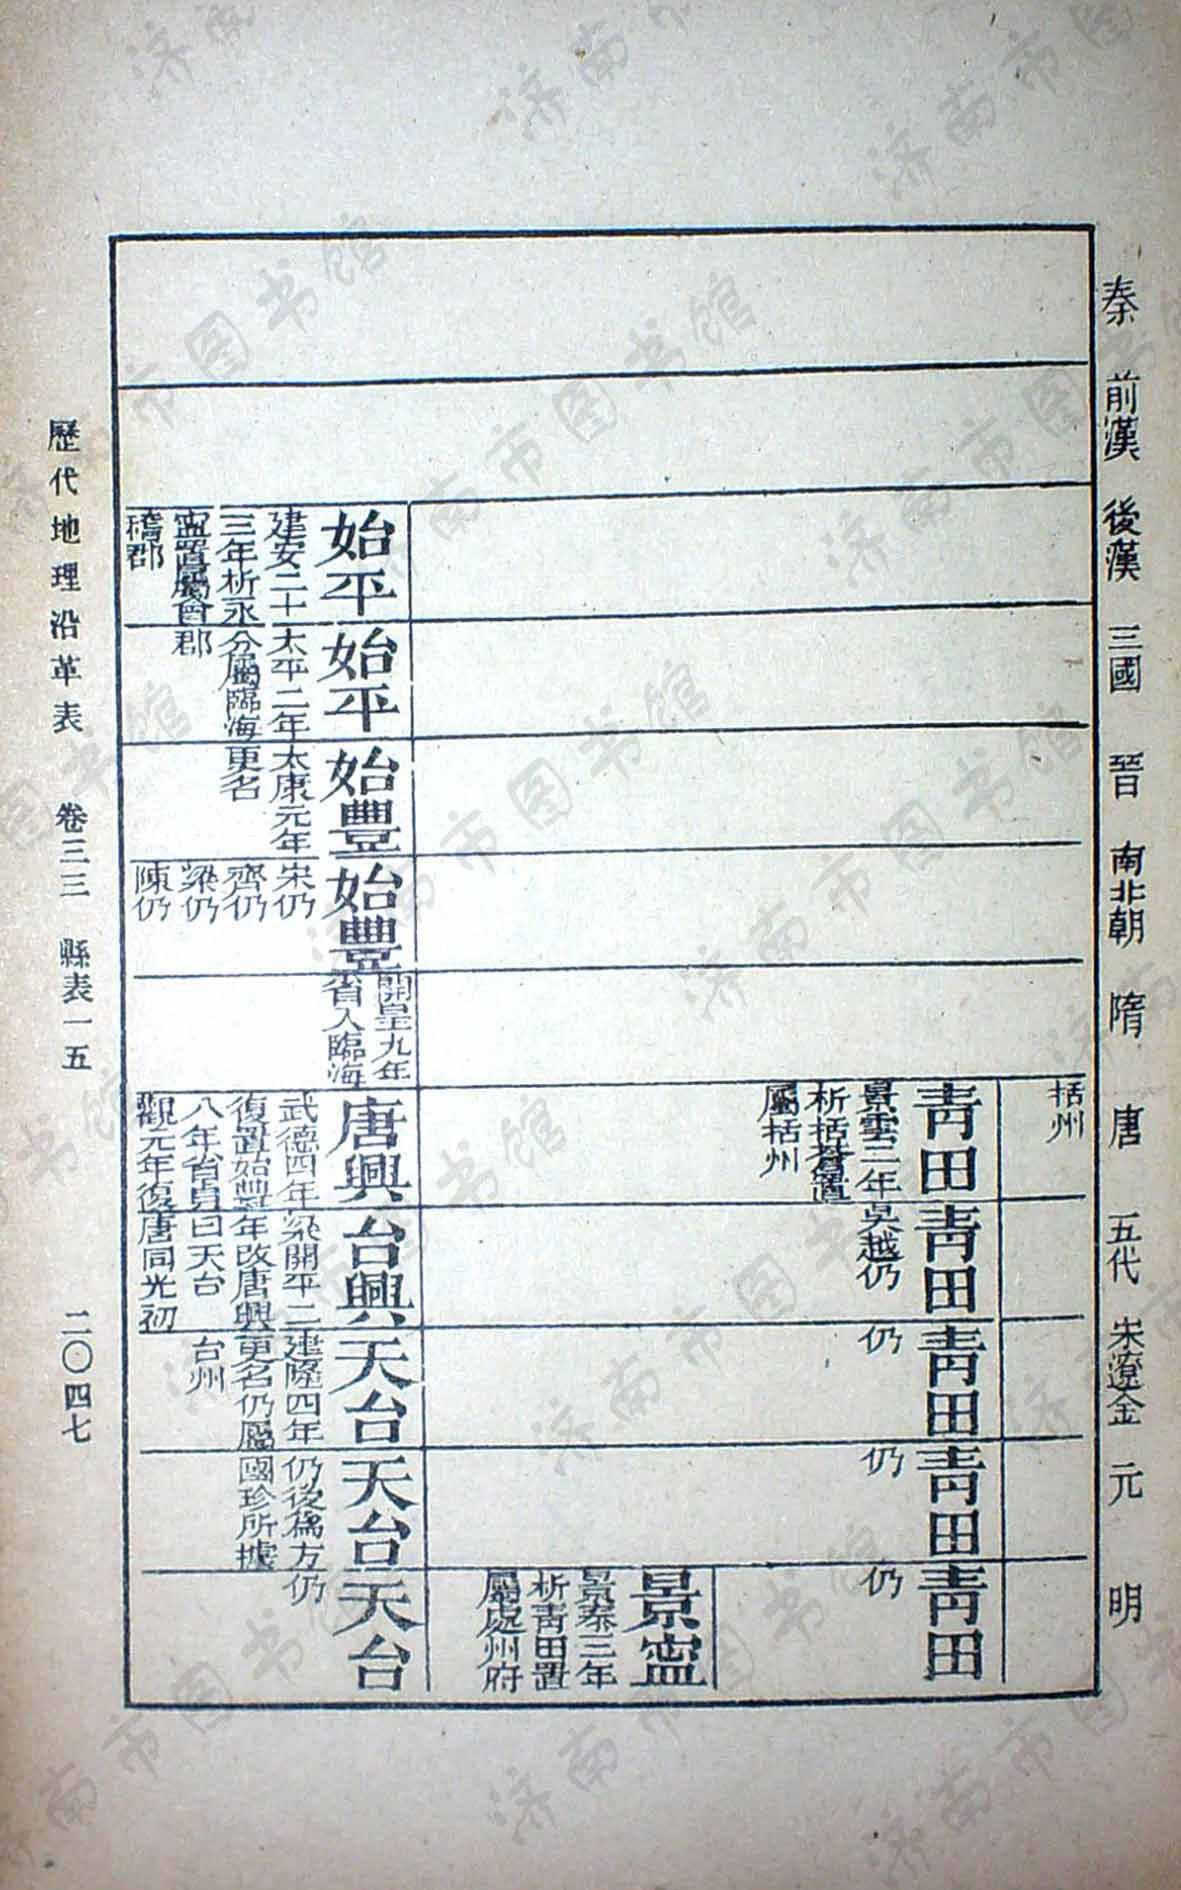 秦
前漢
後漢
三國
晉
南北朝
隋
唐
五代
宋遼金
元
明
括州
靑田
景雲二年
析括蒼置
屬括州
靑田
吳越仍
靑田
仍
靑田
仍
靑田
仍
景寧
景泰三年
析靑田置
屬處州府
始平
建安二十
三年析永
寧置屬會
稽郡
始平
太平二年
分屬臨海
郡
始豐
太康元年
更名
始豐
宋仍
齊仍
梁仍
陳仍
開皇九年
省入臨海
唐興
武德四年
復置始豐
八年省貞
觀元年復
台興
梁開平二
年改唐興
曰天台
唐同光初
天台
建隆四年
更名仍屬
台州
天台
仍後爲方
國珍所據
天台
仍
歷代地理沿革表 卷三三 縣表一五 二〇四七
济南市图书馆